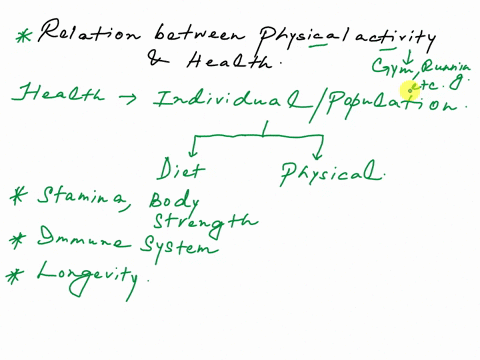 * Relation between Physical activity
& Health.
Gym, Running
etc.
Health → Individual/Population.
Diet Physical.
* Stamina, Body
Strength
* Immune System
* Longevity.